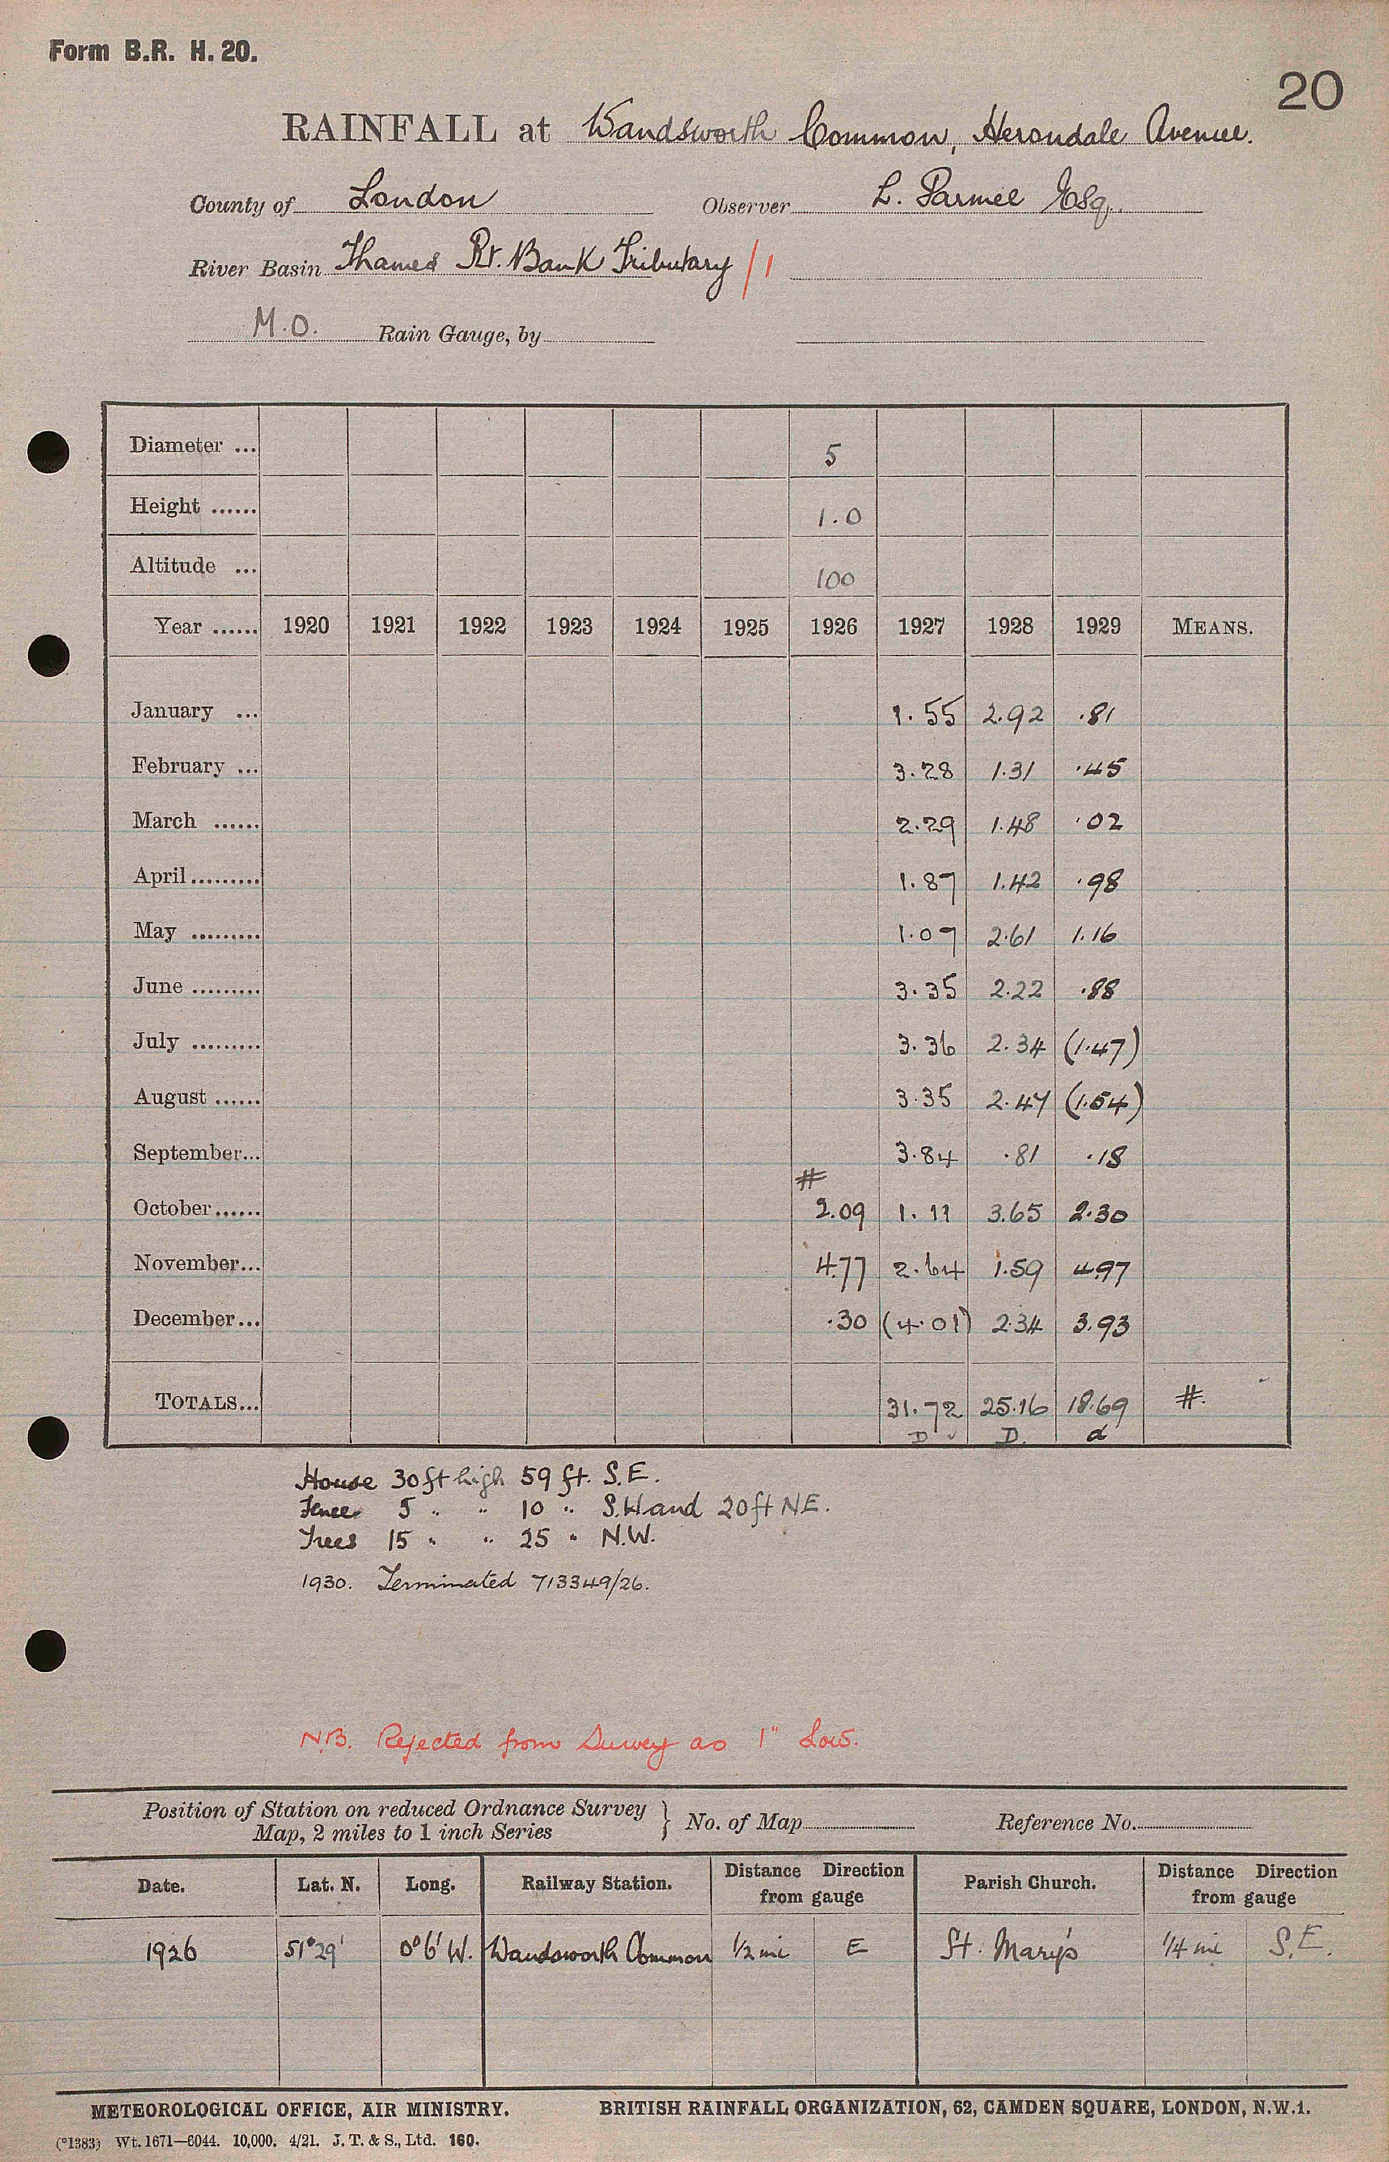 Form B.R. H. 20.
20
RAINFALL at Wandsworth Common, Herondale Avenue.
County of London Observer L. Parmee Esq.
River Basin Thames Rt. Bank Tributary /1
M.O. Rain Gauge, by
Diameter ... 5
Height ...... 1.0
Altitude ... 100
Year ...... 1920 1921 1922 1923 1924 1925 1926 1927 1928 1929 MEANS.
January ... 1.55 2.92 .81
February ... 3.28 1.31 .45
March ...... 2.29 1.48 .02
April ......... 1.87 1.42 .98
May ......... 1.07 2.61 1.16
June ......... 3.35 2.22 .88
July ......... 3.36 2.34 (1.47)
August ...... 3.35 2.47 (1.54)
September... 3.84 .81 .18
#
October ...... 2.09 1.11 3.65 2.30
November... 4.77 2.64 1.59 4.97
December... .30 (4.01) 2.34 3.93
TOTALS... 31.72 25.16 18.69 #
D D d
House 30 ft high 59 ft. S.E.
Fence 5 " " 10 " S.W. and 20 ft NE.
Trees 15 " " 25 " N.W.
1930. Terminated 713349/26.
N.B. Rejected from Survey as 1" Low.
Position of Station on reduced Ordnance Survey
Map, 2 miles to 1 inch Series } No. of Map Reference No.
Date. Lat. N. Long. Railway Station. Distance Direction from gauge Parish Church. Distance Direction from gauge
1926 51°29' 0°6' W. Wandsworth Common 1/2 mi E St. Mary's 1/4 mi S.E.
METEOROLOGICAL OFFICE, AIR MINISTRY. BRITISH RAINFALL ORGANIZATION, 62, CAMDEN SQUARE, LONDON, N.W.1.
(*1383) Wt. 1671—6044. 10,000. 4/21. J. T. & S., Ltd. 160.